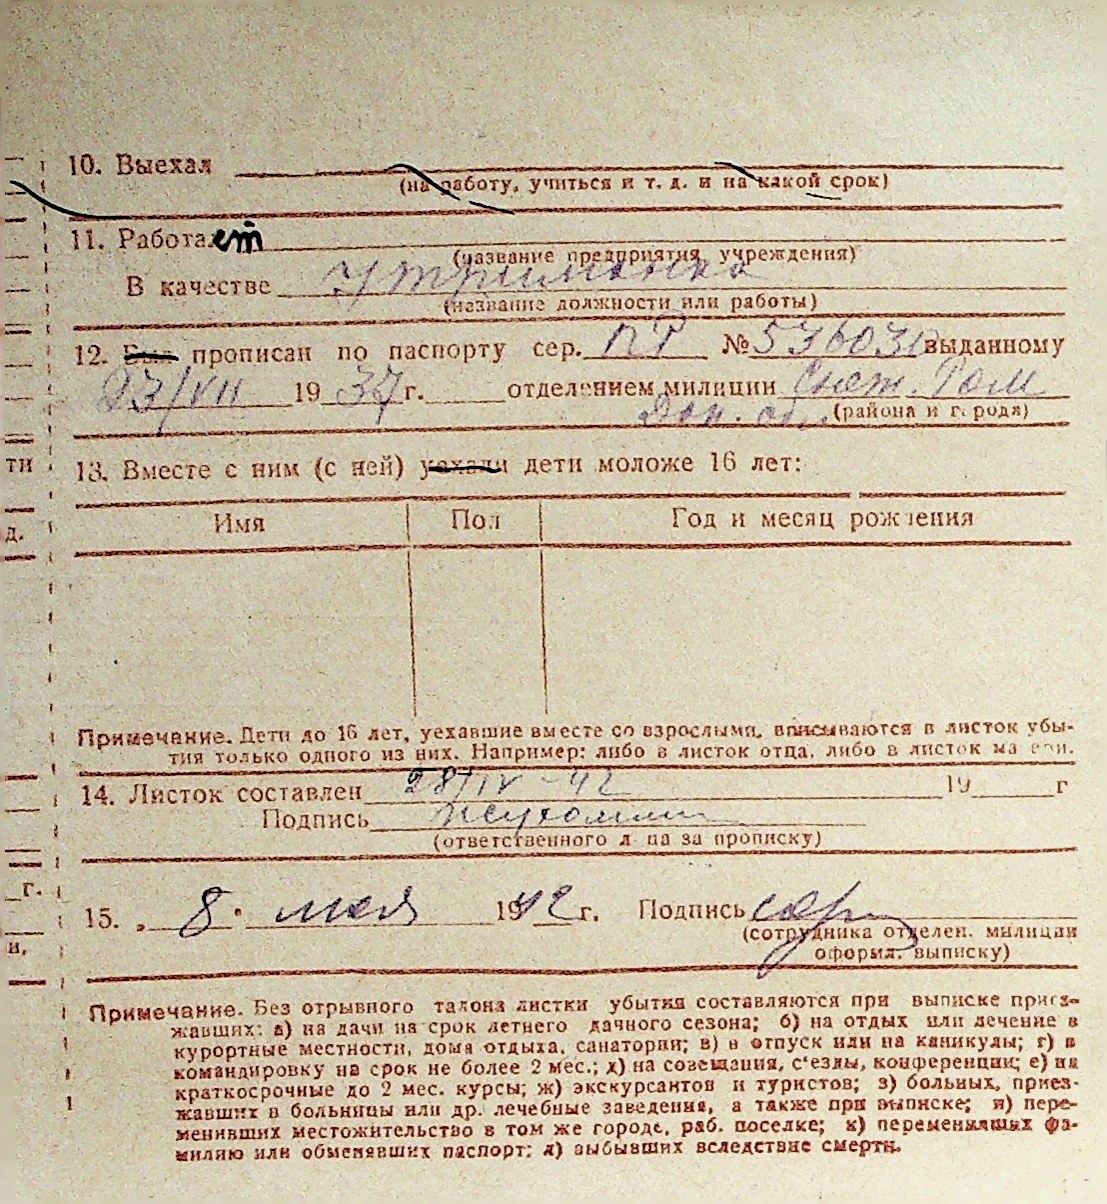 10. Выехал
(на работу, учиться и т. д. и на какой срок)
11. Работает
(название предприятия, учреждения)
В качестве Утриманка
(название должности или работы)
12. Был прописан по паспорту сер. ПР № 536030 выданному
23/VII 1937 г. отделением милиции Снеж. Ром
Дон. об. (района и города)
ти
13. Вместе с ним (с ней) уехали дети моложе 16 лет:
д.
Имя Пол Год и месяц рождения
Примечание. Дети до 16 лет, уехавшие вместе со взрослыми, вписываются в листок убы-
тия только одного из них. Например: либо в листок отца, либо в листок матери.
14. Листок составлен 28/IV-42 19 г
Подпись
(ответственного лица за прописку)
г.
15. „ 8 " мая 1942 г. Подпись
(сотрудника отделен. милиции
и.
оформл. выписку)
Примечание. Без отрывного талона листки убытия составляются при выписке приез-
жавших: а) на дачи на срок летнего дачного сезона; б) на отдых или лечение в
курортные местности, дома отдыха, санатории; в) в отпуск или на каникулы; г) в
командировку на срок не более 2 мес.; д) на совещания, с'езды, конференции; е) на
краткосрочные до 2 мес. курсы; ж) экскурсантов и туристов; з) больных, приез-
жавших в больницы или др. лечебные заведения, а также при выписке; и) пере-
менивших местожительство в том же городе, раб. поселке; к) переменивших фа-
милию или обменявших паспорт; л) выбывших вследствие смерти.